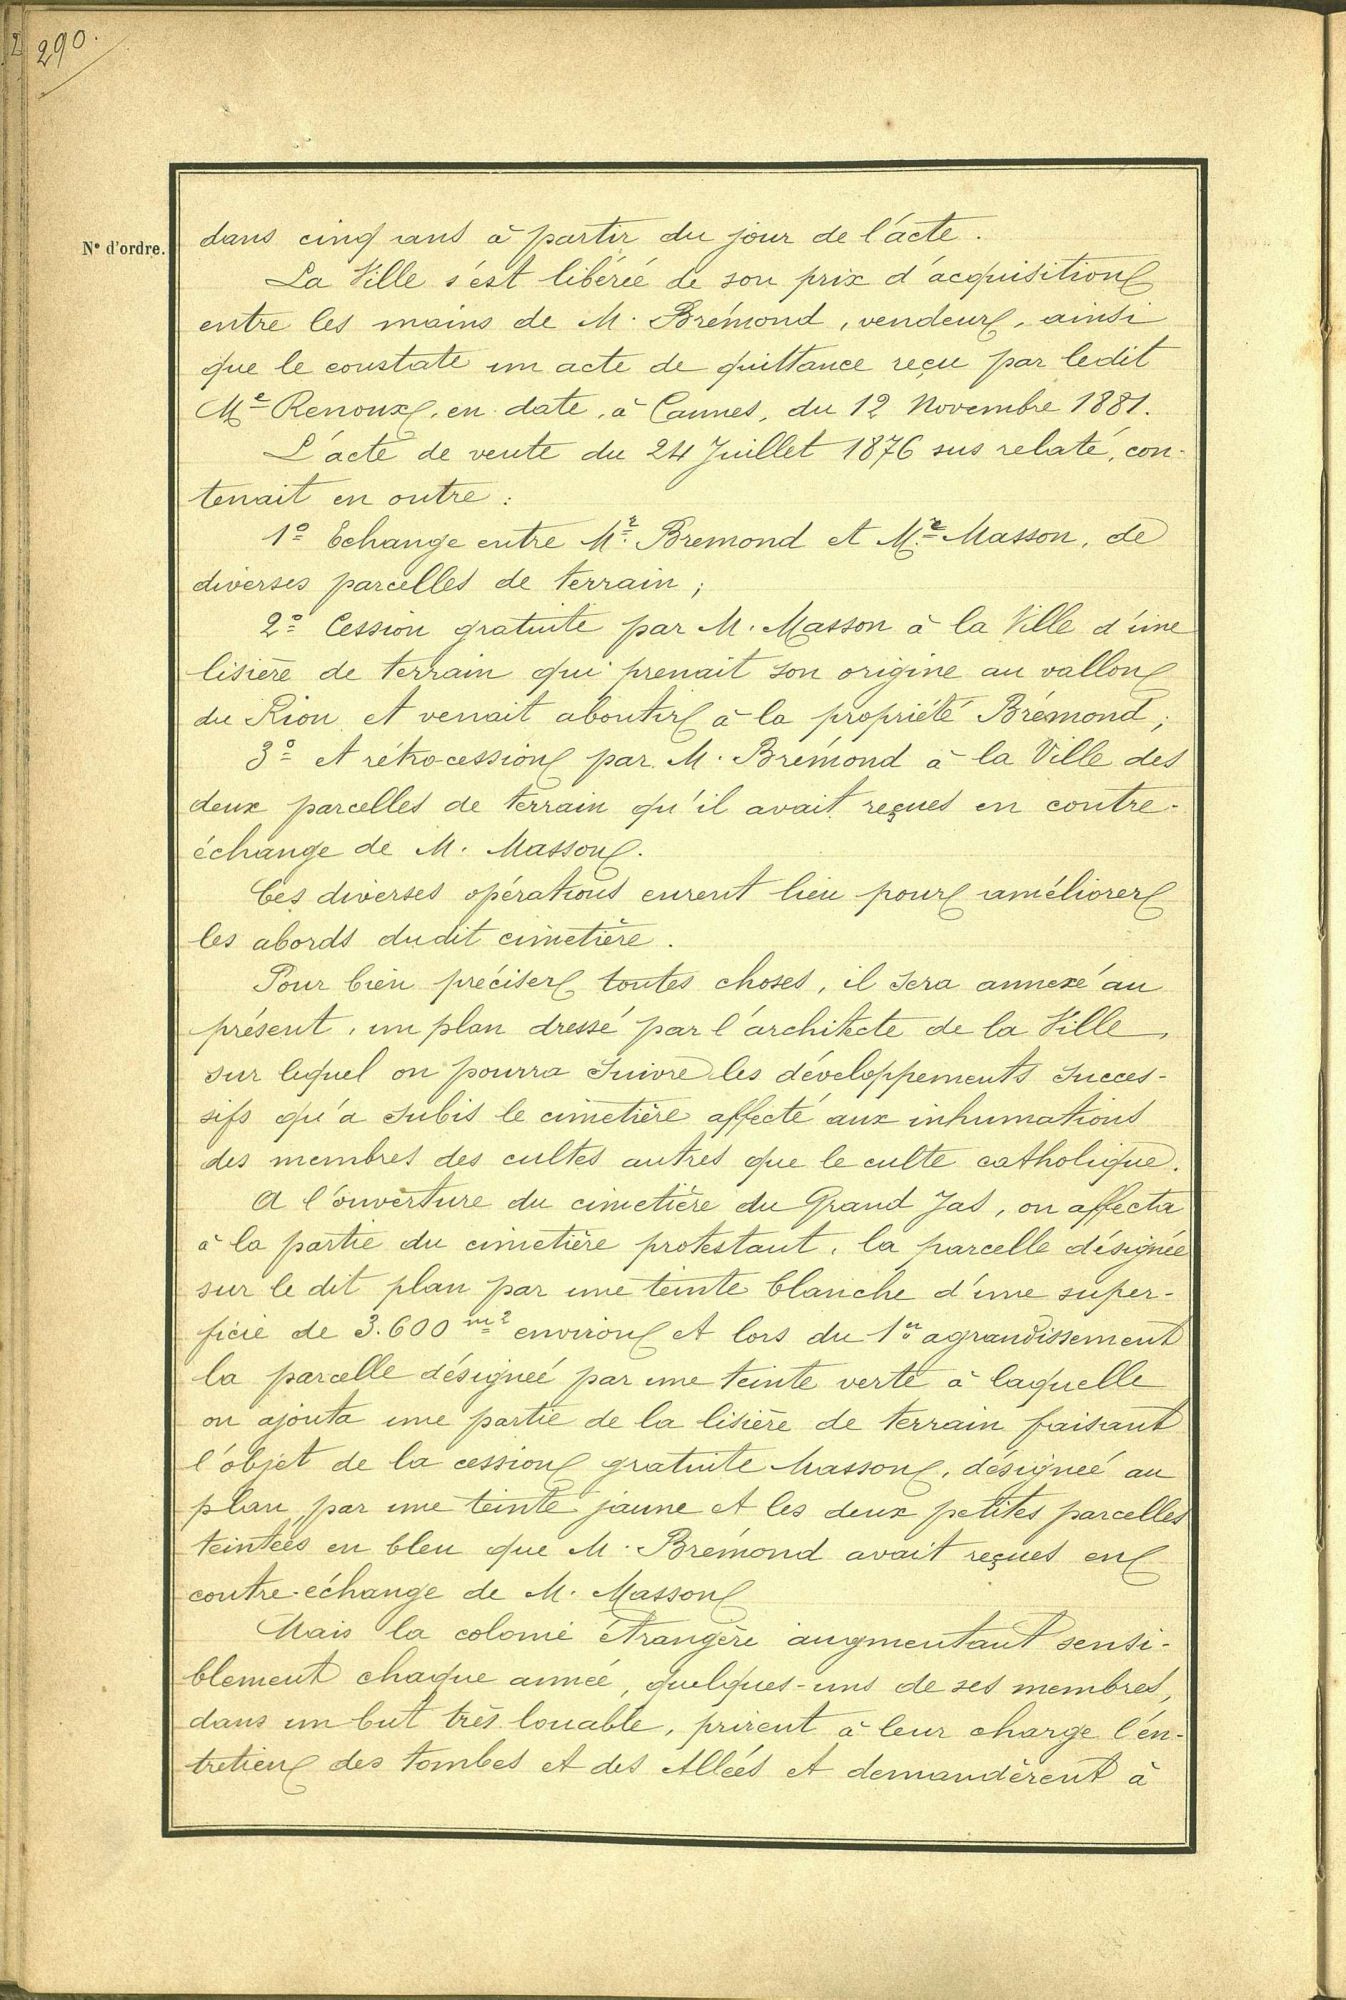 290.
N° d'ordre.
dans cinq ans à partir du jour de l'acte.
La Ville s'est libérée de son prix d'acquisition
entre les mains de M. Brémond, vendeur, ainsi
que le constate un acte de quittance reçu par ledit
Me Renoux, en date, à Cannes, du 12 Novembre 1881.
L'acte de vente du 24 Juillet 1876 sus relaté, con-
tenait en outre :
1° Echange entre Mr. Bremond et Mr. Masson, de
diverses parcelles de terrain ;
2° Cession gratuite par M. Masson à la Ville d'une
lisière de terrain qui prenait son origine au vallon
du Riou et venait aboutir à la propriété Brémond ;
3° et rétrocession par M. Brémond à la Ville des
deux parcelles de terrain qu'il avait reçues en contre-
échange de M. Masson.
Ces diverses opérations eurent lieu pour améliorer
les abords dudit cimetière.
Pour bien préciser toutes choses, il sera annexé au
présent, un plan dressé par l'architecte de la Ville,
sur lequel on pourra suivre les développements succes-
sifs qu'a subis le cimetière affecté aux inhumations
des membres des cultes autres que le culte catholique.
A l'ouverture du cimetière du Grand Jas, on affecta
à la partie du cimetière protestant, la parcelle désignée
sur le dit plan par une teinte blanche d'une super-
ficie de 3.600 m² environ et lors du 1er agrandissement
la parcelle désignée par une teinte verte à laquelle
on ajouta une partie de la lisière de terrain faisant
l'objet de la cession gratuite Masson, désignée au
plan, par une teinte jaune et les deux petites parcelles
teintées en bleu que M. Brémond avait reçues en
contre-échange de M. Masson
Mais la colonie étrangère augmentant sensi-
blement chaque année, quelques-uns de ses membres,
dans un but très louable, prirent à leur charge l'en-
tretien des tombes et des allées et demandèrent à